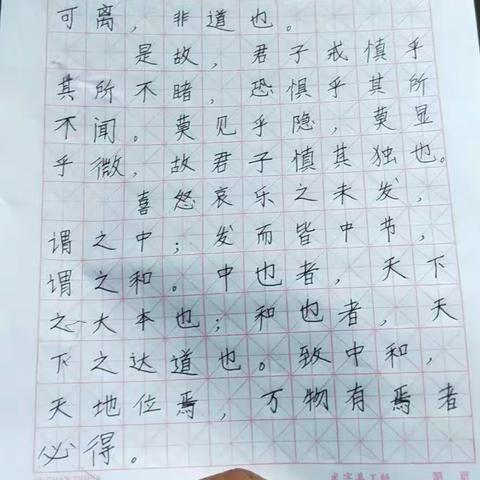 可离，非道也。
是故，君子戒慎乎
其所不睹，恐惧乎其所
不闻。莫见乎隐，莫显
乎微，故君子慎其独也。
喜怒哀乐之未发，
谓之中；发而皆中节，
谓之和。中也者，天下
之大本也；和也者，天
下之达道也。致中和，
天地位焉，万物有焉者
必得。
第 页